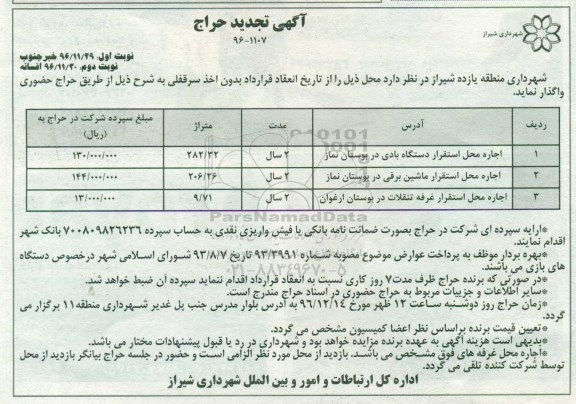 آگهی تجدید حراج
۹۶-۱۱۰۷
شهرداری شیراز
نوبت اول: ۹۶/۱۱/۲۹ خبر جنوب
نوبت دوم: ۹۶/۱۱/۳۰ افسانه
شهرداری منطقه یازده شیراز در نظر دارد محل ذیل را از تاریخ انعقاد قرارداد بدون اخذ سرقفلی به شرح ذیل از طریق حراج حضوری
واگذار نماید.
ردیف آدرس مدت متراژ مبلغ سپرده شرکت در حراج به (ریال)
۱ اجاره محل استقرار دستگاه بادی در بوستان نماز ۲ سال ۲۸۲/۳۲ ۱۳۰/۰۰۰/۰۰۰
۲ اجاره محل استقرار ماشین برقی در بوستان نماز ۲ سال ۲۰۶/۳۶ ۱۴۴/۰۰۰/۰۰۰
۳ اجاره محل استقرار غرفه تنقلات در بوستان ارغوان ۲ سال ۹/۷۱ ۱۳/۰۰۰/۰۰۰
ParsNamadData
۰۲۱-۸۸۳۴۹۶۷۰-۵
*ارایه سپرده ای شرکت در حراج بصورت ضمانت نامه بانکی یا فیش واریزی نقدی به حساب سپرده ۷۰۰۸۰۹۸۲۶۲۳۶ بانک شهر
اقدام نمایند.
*بهره بردار موظف به پرداخت عوارض موضوع مصوبه شماره ۹۳/۳۹۹۱ تاریخ ۹۳/۸/۷ شورای اسلامی شهر درخصوص دستگاه
های بازی می باشند.
*در صورتی که برنده حراج ظرف مدت۷ روز کاری نسبت به انعقاد قرارداد اقدام ننماید سپرده آن ضبط خواهد شد.
*سایر اطلاعات و جزییات مربوط به حراج حضوری در اسناد حراج مندرج است.
*زمان حراج روز دوشنبه ساعت ۱۲ ظهر مورخ ۹۶/۱۲/۱۴ به آدرس بلوار مدرس جنب پل غدیر شهرداری منطقه۱۱ برگزار می
گردد.
*تعیین قیمت برنده براساس نظر اعضا کمیسیون مشخص می گردد.
*بدیهی است هزینه آگهی به عهده برنده مزایده خواهد بود و شهرداری در رد یا قبول پیشنهادات مختار می باشد.
*اجاره محل غرفه های فوق مشخص می باشد. بازدید از محل مورد نظر الزامی است و حضور در جلسه حراج بیانگر بازدید از محل
توسط شرکت کننده تلقی می گردد.
اداره کل ارتباطات و امور و بین الملل شهرداری شیراز